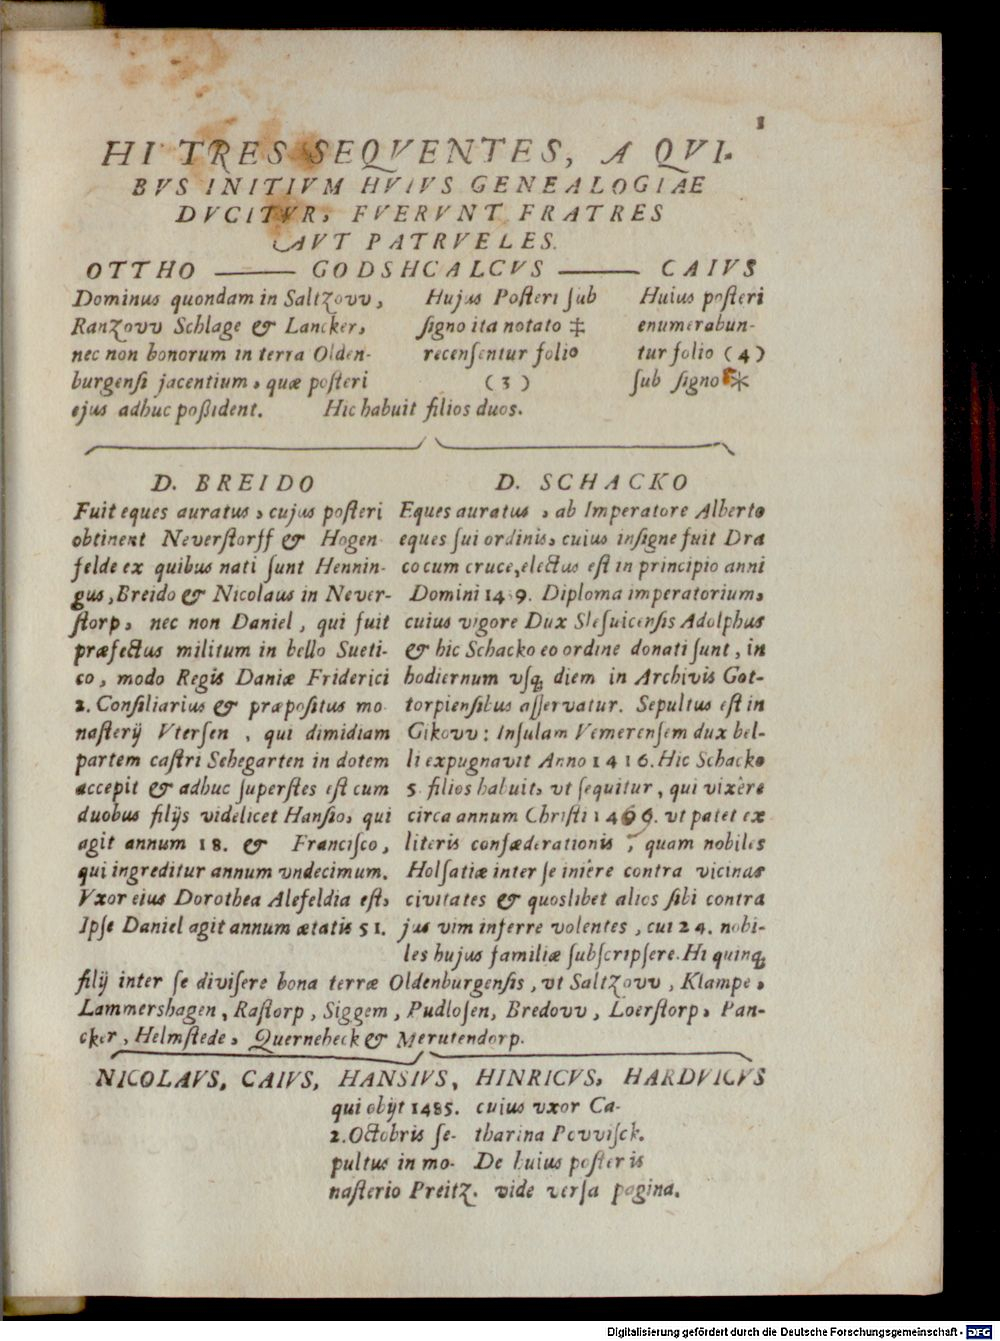 1
HI TRES SEQVENTES, A QVI-
BVS INITIVM HVIVS GENEALOGIAE
DVCITVR, FVERVNT FRATRES
AVT PATRVELES.
OTTHO —— GODSHCALCVS —— CAIVS
Dominus quondam in Saltzovv,
Ranzovv Schlage & Lancker,
nec non bonorum in terra Olden-
burgensi jacentium, quæ posteri
ejus adhuc poßident. Hic habuit filios duos.
Hujus Posteri sub
signo ita notato ‡
recensentur folio
(3)
Huius posteri
enumerabun-
tur folio (4)
sub signo *
D. BREIDO
Fuit eques auratus, cujus posteri
obtinent Neverstorff & Hogen-
felde ex quibus nati sunt Hennin-
gus, Breido & Nicolaus in Never-
storp, nec non Daniel, qui fuit
præfectus militum in bello Sueti-
co, modo Regis Daniæ Friderici
2. Consiliarius & præpositus mo-
nasterij Vtersen, qui dimidiam
partem castri Sehegarten in dotem
accepit & adhuc superstes est cum
duobus filijs videlicet Hansio, qui
agit annum 18. & Francisco,
qui ingreditur annum vndecimum.
Vxor eius Dorothea Alefeldia est,
Ipse Daniel agit annum ætatis 51.
D. SCHACKO
Eques auratus, ab Imperatore Alberto
eques sui ordinis, cuius insigne fuit Dra
co cum cruce, electus est in principio anni
Domini 14 9. Diploma imperatorium,
cuius vigore Dux Slesuicensis Adolphus
& hic Schacko eo ordine donati sunt, in
hodiernum vsq; diem in Archivis Got-
torpiensibus asservatur. Sepultus est in
Gikovv: Insulam Vemerensem dux bel-
li expugnavit Anno 1416. Hic Schacko
5. filios habuit, vt sequitur, qui vixêre
circa annum Christi 1469. vt patet ex
literis confæderationis, quam nobiles
Holsatiæ inter se iniêre contra vicinas
civitates & quoslibet alios sibi contra
jus vim inferre volentes, cui 24. nobi-
les hujus familiæ subscripsere. Hi quinq;
filij inter se divisere bona terræ Oldenburgensis, vt Saltzovv, Klampe,
Lammershagen, Rastorp, Siggem, Pudlosen, Bredovv, Loerstorp, Pan-
cker, Helmstede, Quernebeck & Merutendorp.
NICOLAVS, CAIVS, HANSIVS, HINRICVS, HARDVICVS
qui obijt 1485.
2. Octobris se-
pultus in mo-
nasterio Preitz.
cuius vxor Ca-
tharina Povvisck.
De huius posteris
vide versa pagina.
Digitalisierung gefördert durch die Deutsche Forschungsgemeinschaft - DFG